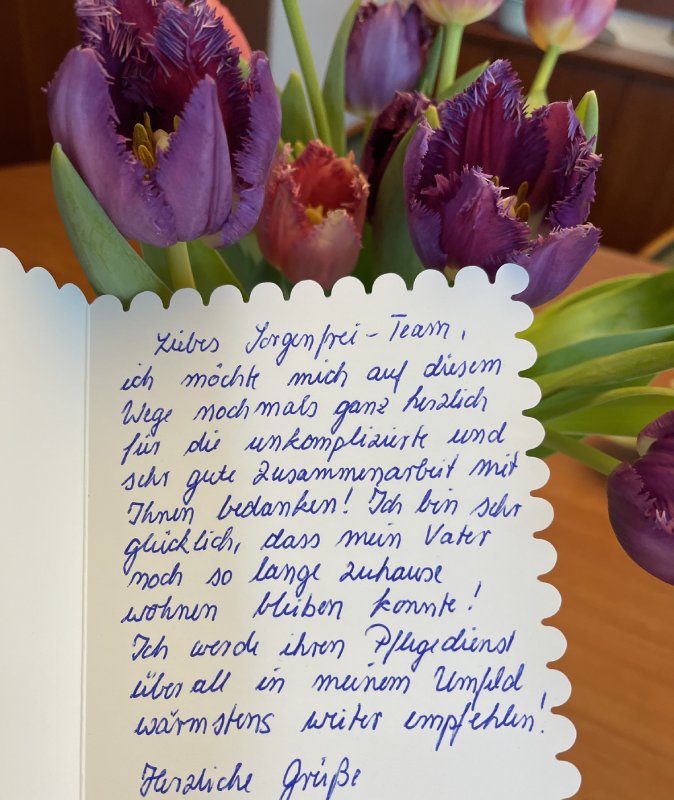 Liebes Sorgenfrei-Team,
ich möchte mich auf diesem
Wege nochmals ganz herzlich
für die unkomplizierte und
sehr gute Zusammenarbeit mit
Ihnen bedanken! Ich bin sehr
glücklich, dass mein Vater
noch so lange zuhause
wohnen bleiben konnte!
Ich werde ihren Pflegedienst
überall in meinem Umfeld
wärmstens weiter empfehlen!
Herzliche Grüße